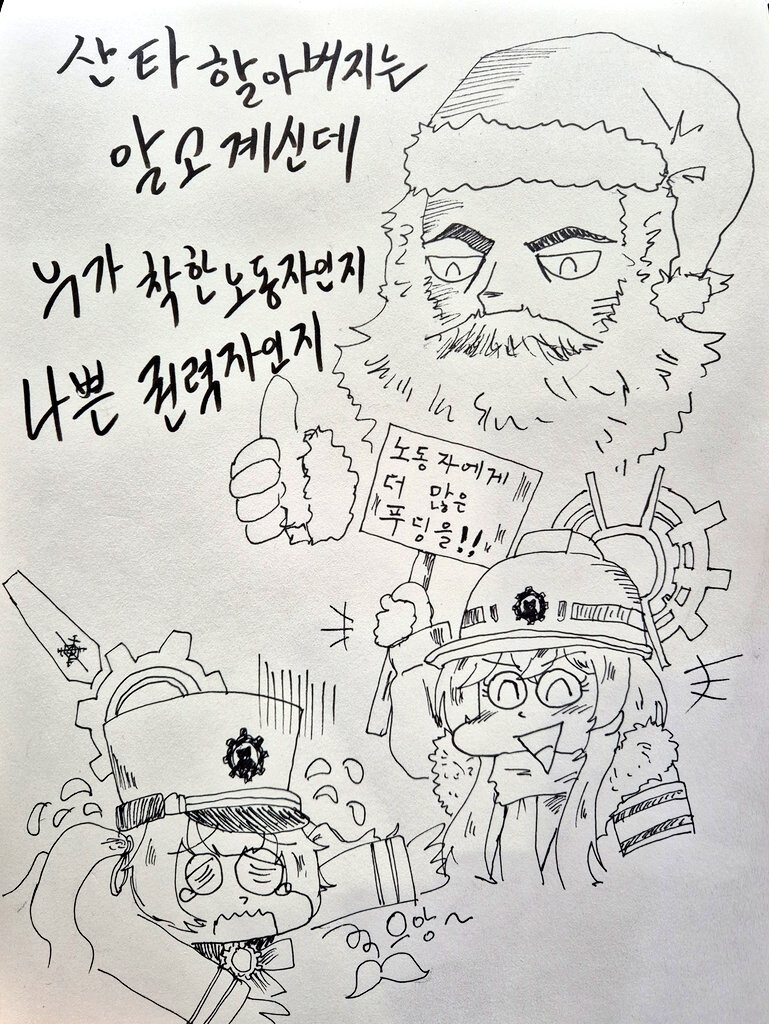 산타 할아버지는
알고 계신데
누가 착한 노동자인지
나쁜 권력자인지
노동자에게
더 많은
푸딩을!!
으앙~